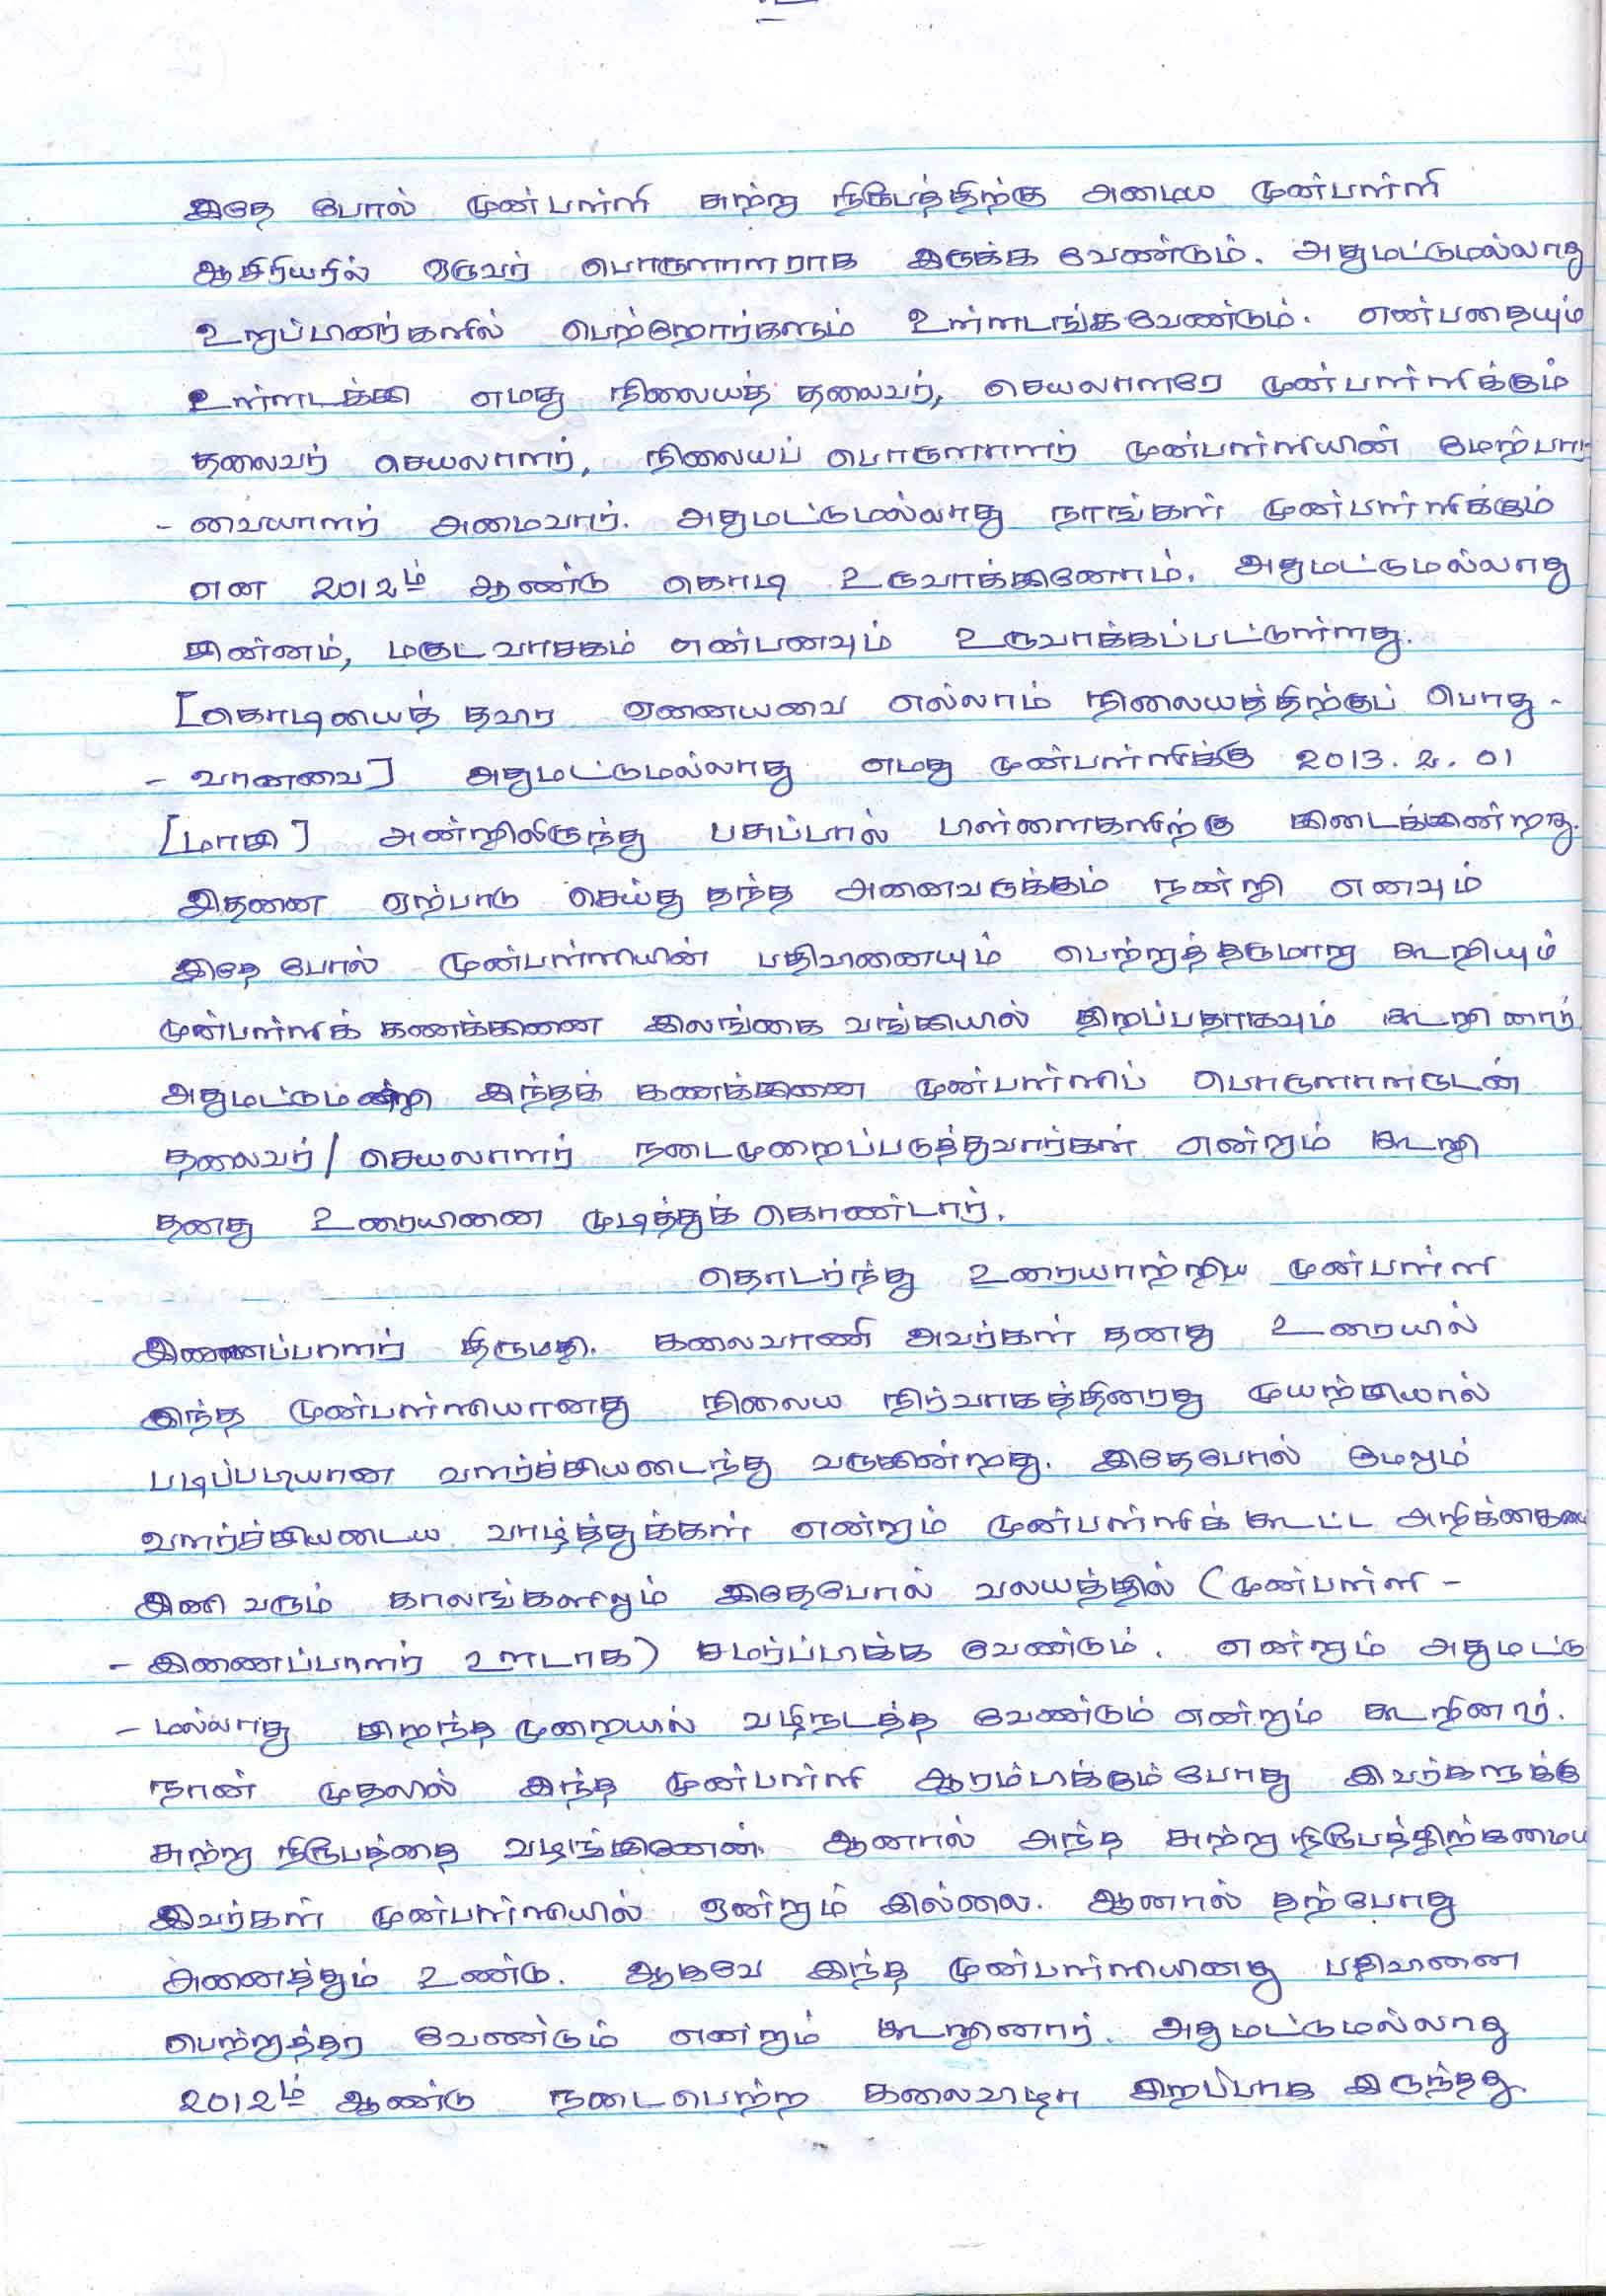 இதே போல் முன்பள்ளி சுற்று நிருபத்திற்கு அமைய முன்பள்ளி
ஆசிரியரில் ஒருவர் பொருளாளராக இருக்க வேண்டும். அதுமட்டுமல்லாது
உறுப்பினர்களில் பெற்றோர்களும் உள்ளடங்கவேண்டும். என்பதையும்
உள்ளடக்கி எமது நிலையத் தலைவர், செயலாளரே முன்பள்ளிக்கும்
தலைவர் செயலாளர், நிலையப் பொருளாளர் முன்பள்ளியின் மேற்பார்
- வையாளர் அமைவார். அதுமட்டுமல்லாது நாங்கள் முன்பள்ளிக்கும்
என 2012ம் ஆண்டு கொடி உருவாக்கினோம். அதுமட்டுமல்லாது
சின்னம், மகுடவாசகம் என்பனவும் உருவாக்கப்பட்டுள்ளது.
[கொடியைத் தவிர ஏனையவை எல்லாம் நிலையத்திற்குப் பொது -
- வானவை] அதுமட்டுமல்லாது எமது முன்பள்ளிக்கு 2013.2.01
[மாசி] அன்றிலிருந்து பசுப்பால் பிள்ளைகளிற்கு கிடைக்கின்றது.
இதனை ஏற்பாடு செய்து தந்த அனைவருக்கும் நன்றி எனவும்
இதே போல் முன்பள்ளியின் பதிவினையும் பெற்றுத்தருமாறு கூறியும்
முன்பள்ளிக் கணக்கினை இலங்கை வங்கியில் திறப்பதாகவும் கூறினார்
அதுமட்டுமன்றி இந்தக் கணக்கினை முன்பள்ளிப் பொருளாளருடன்
தலைவர்/செயலாளர் நடைமுறைப்படுத்துவார்கள் என்றும் கூறி
தனது உரையினை முடித்துக் கொண்டார்.
தொடர்ந்து உரையாற்றிய முன்பள்ளி
இணைப்பாளர் திருமதி. கலைவாணி அவர்கள் தனது உரையில்
இந்த முன்பள்ளியானது நிலைய நிர்வாகத்தினரது முயற்சியால்
படிப்படியான வளர்ச்சியடைந்து வருகின்றது. இதேபோல் மேலும்
வளர்ச்சியடைய வாழ்த்துக்கள் என்றும் முன்பள்ளிக் கூட்ட அறிக்கையை
இனி வரும் காலங்களிலும் இதேபோல் வலயத்தில் (முன்பள்ளி -
- இணைப்பாளர் ஊடாக) சமர்ப்பிக்க வேண்டும். என்றும் அதுமட்டு
- மல்லாது சிறந்த முறையில் வழிநடத்த வேண்டும் என்றும் கூறினார்.
நான் முதலில் இந்த முன்பள்ளி ஆரம்பிக்கும்போது இவர்களுக்கு
சுற்று நிருபத்தை வழங்கினேன். ஆனால் அந்த சுற்று நிருபத்திற்கமைய
இவர்கள் முன்பள்ளியில் ஒன்றும் இல்லை. ஆனால் தற்போது
அனைத்தும் உண்டு. ஆகவே இந்த முன்பள்ளியினது பதிவினை
பெற்றுத்தர வேண்டும் என்றும் கூறினார். அதுமட்டுமல்லாது
2012ம் ஆண்டு நடைபெற்ற கலைவிழா சிறப்பாக இருந்தது.